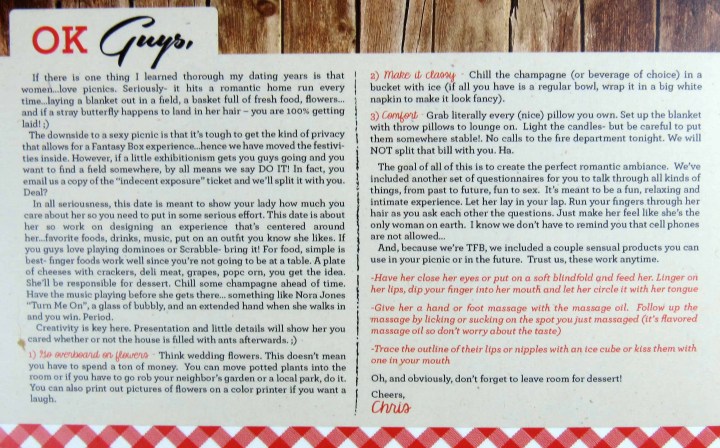 OK Guys,
If there is one thing I learned thorough my dating years is that
women...love picnics. Seriously- it hits a romantic home run every
time...laying a blanket out in a field, a basket full of fresh food, flowers...
and if a stray butterfly happens to land in her hair – you are 100% getting
laid! ;)
The downside to a sexy picnic is that it's tough to get the kind of privacy
that allows for a Fantasy Box experience...hence we have moved the festivi-
ties inside. However, if a little exhibitionism gets you guys going and you
want to find a field somewhere, by all means we say DO IT! In fact, you
email us a copy of the "indecent exposure" ticket and we'll split it with you.
Deal?
In all seriousness, this date is meant to show your lady how much you
care about her so you need to put in some serious effort. This date is about
her so work on designing an experience that's centered around
her...favorite foods, drinks, music, put on an outfit you know she likes. If
you guys love playing dominoes or Scrabble- bring it! For food, simple is
best- finger foods work well since you're not going to be at a table. A plate
of cheeses with crackers, deli meat, grapes, popc orn, you get the idea.
She'll be responsible for dessert. Chill some champagne ahead of time.
Have the music playing before she gets there... something like Nora Jones
"Turn Me On", a glass of bubbly, and an extended hand when she walks in
and you win. Period.
Creativity is key here. Presentation and little details will show her you
cared whether or not the house is filled with ants afterwards. ;)
1) Go overboard on flowers - Think wedding flowers. This doesn't mean
you have to spend a ton of money. You can move potted plants into the
room or if you have to go rob your neighbor's garden or a local park, do it.
You can also print out pictures of flowers on a color printer if you want a
laugh.
2) Make it classy - Chill the champagne (or beverage of choice) in a
bucket with ice (if all you have is a regular bowl, wrap it in a big white
napkin to make it look fancy).
3) Comfort - Grab literally every (nice) pillow you own. Set up the blanket
with throw pillows to lounge on. Light the candles- but be careful to put
them somewhere stable!. No calls to the fire department tonight. We will
NOT split that bill with you. Ha.
The goal of all of this is to create the perfect romantic ambiance. We've
included another set of questionnaires for you to talk through all kinds of
things, from past to future, fun to sex. It's meant to be a fun, relaxing and
intimate experience. Let her lay in your lap. Run your fingers through her
hair as you ask each other the questions. Just make her feel like she's the
only woman on earth. I know we don't have to remind you that cell phones
are not allowed...
And, because we're TFB, we included a couple sensual products you can
use in your picnic or in the future. Trust us, these work anytime.
-Have her close her eyes or put on a soft blindfold and feed her. Linger on
her lips, dip your finger into her mouth and let her circle it with her tongue
-Give her a hand or foot massage with the massage oil. Follow up the
massage by licking or sucking on the spot you just massaged (it's flavored
massage oil so don't worry about the taste)
-Trace the outline of their lips or nipples with an ice cube or kiss them with
one in your mouth
Oh, and obviously, don't forget to leave room for dessert!
Cheers,
Chris